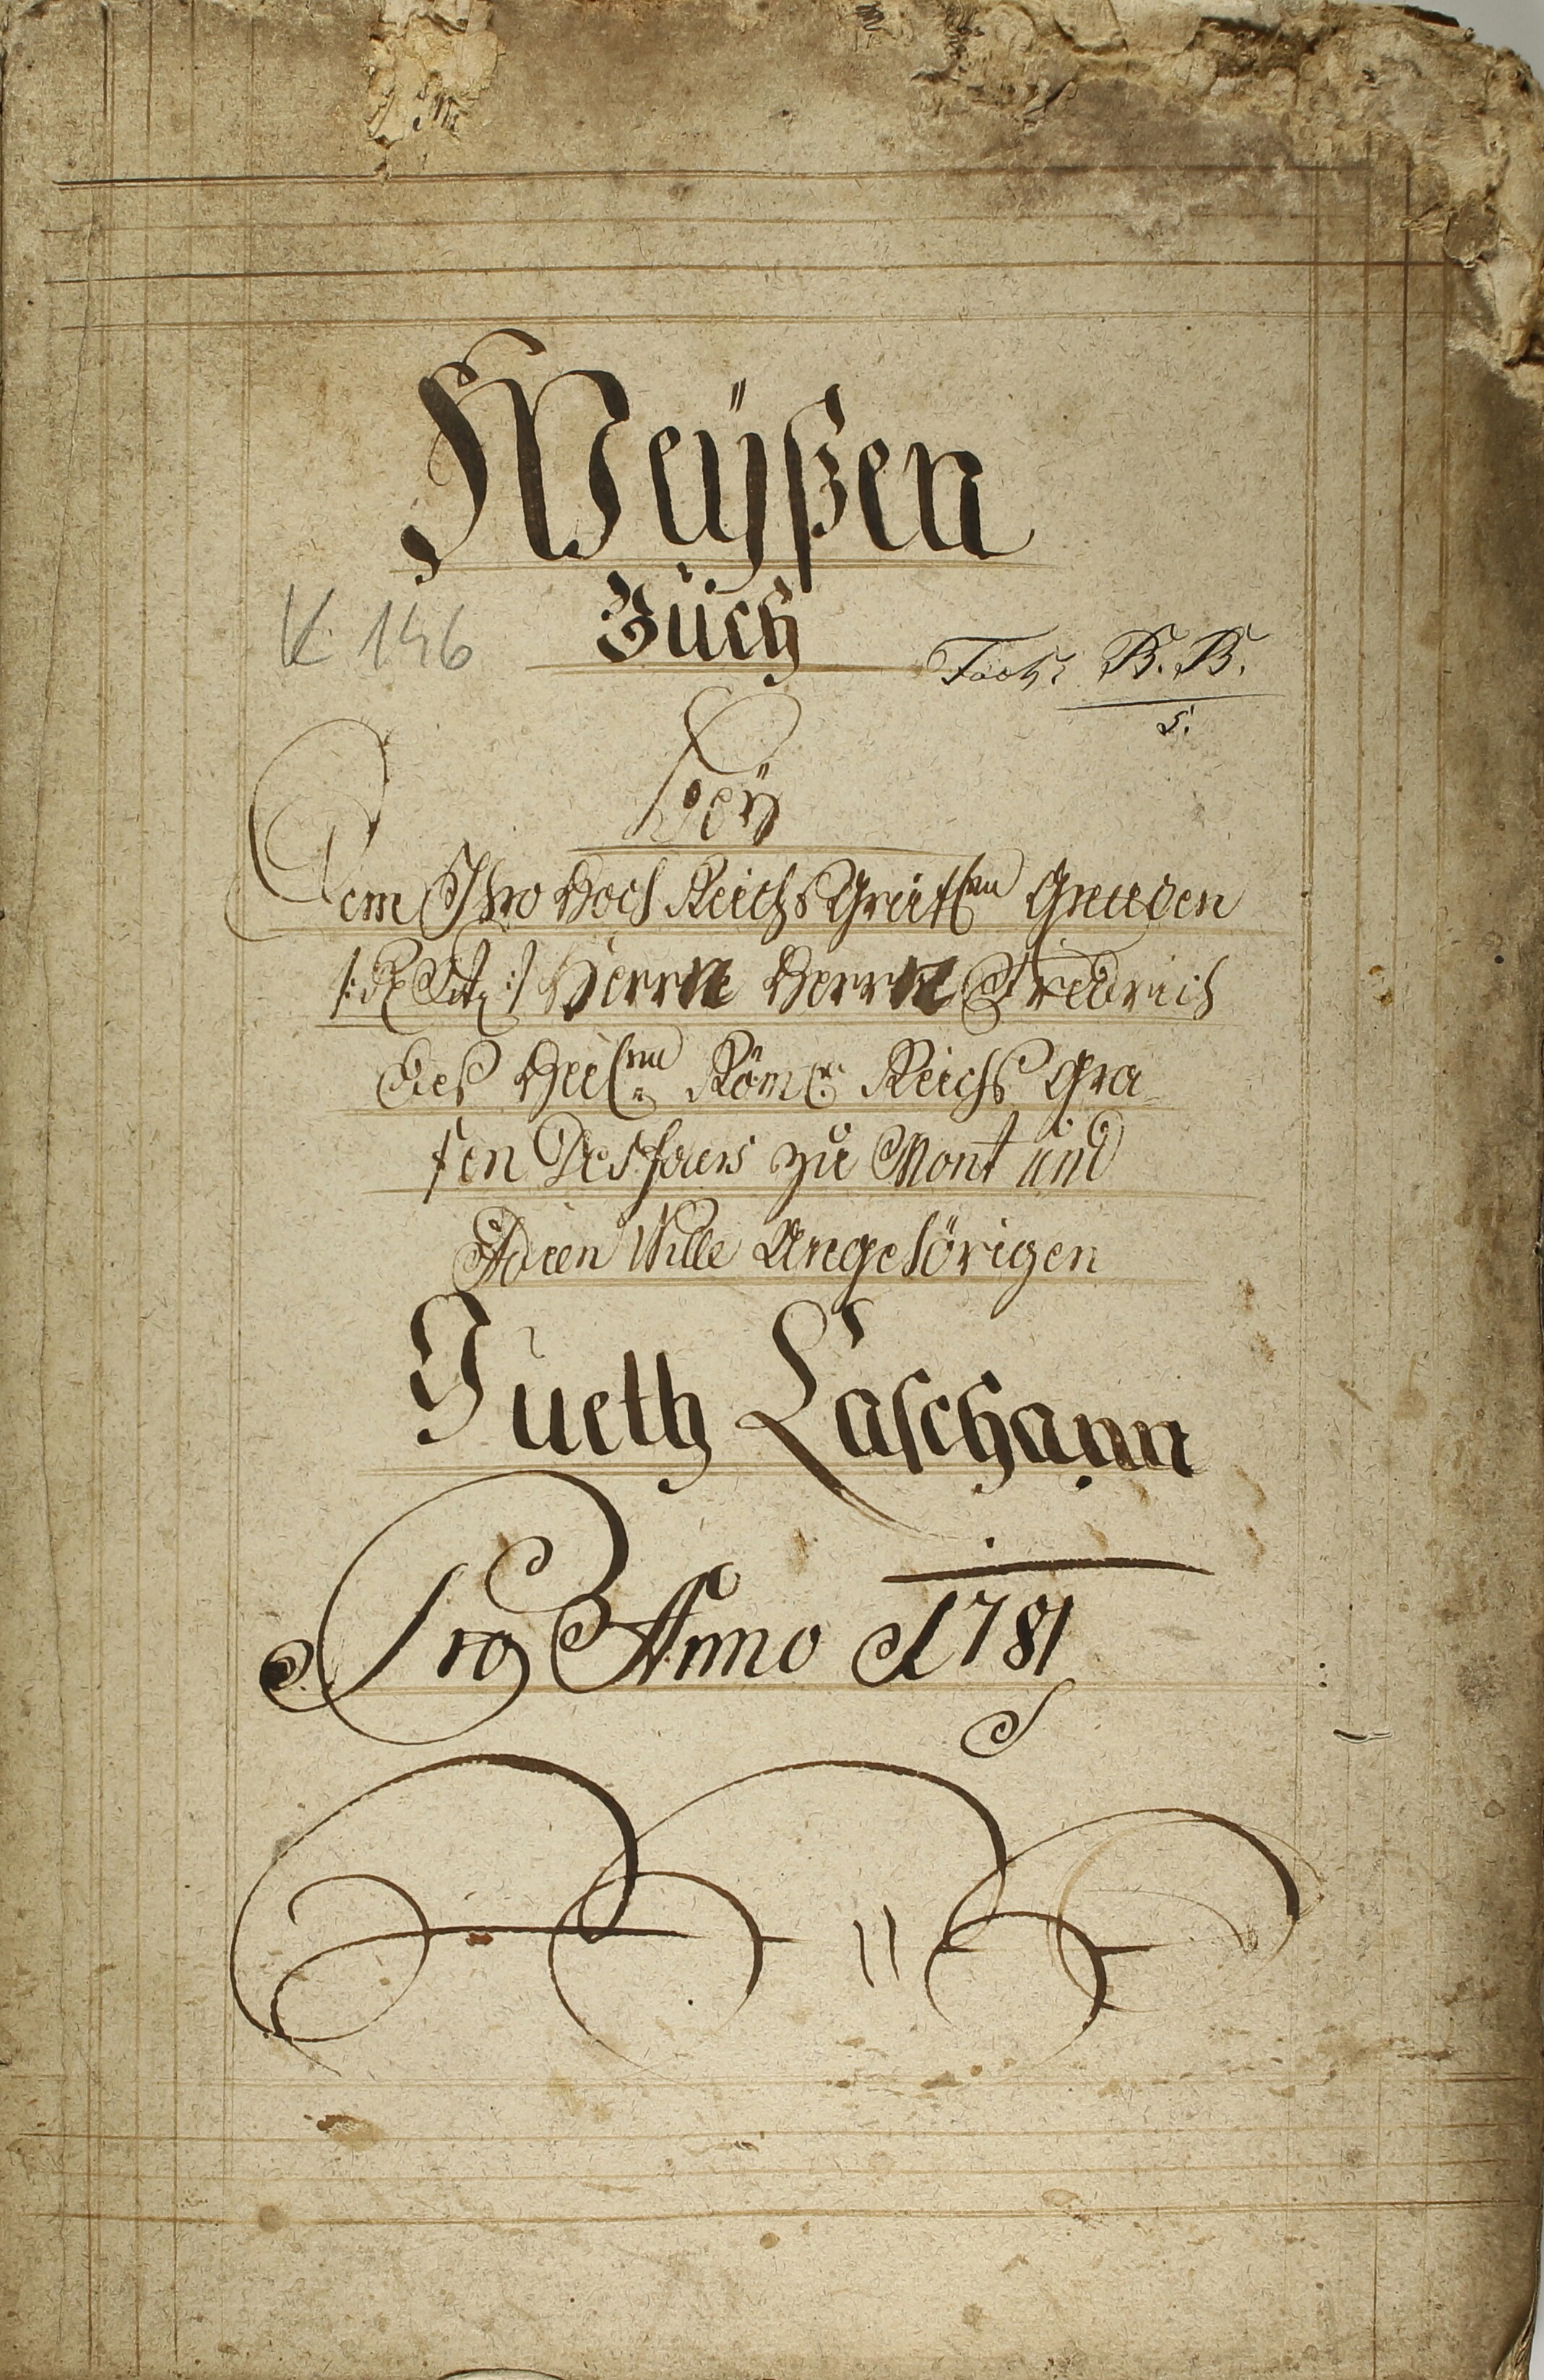 Weÿßen
Büch
K 146
Fach: B. B.
5.
Beÿ
Dem Ihro Hoch Reichs Gräfl:en Gnaden
/: Tit: :/ Herrn Herrn Friedrich
des Heil:en Röm: Reichs Gra
fen Desfours zu Mont und
Adien Wille Angehörigen
Gueth Laschann
Pro Anno 1781